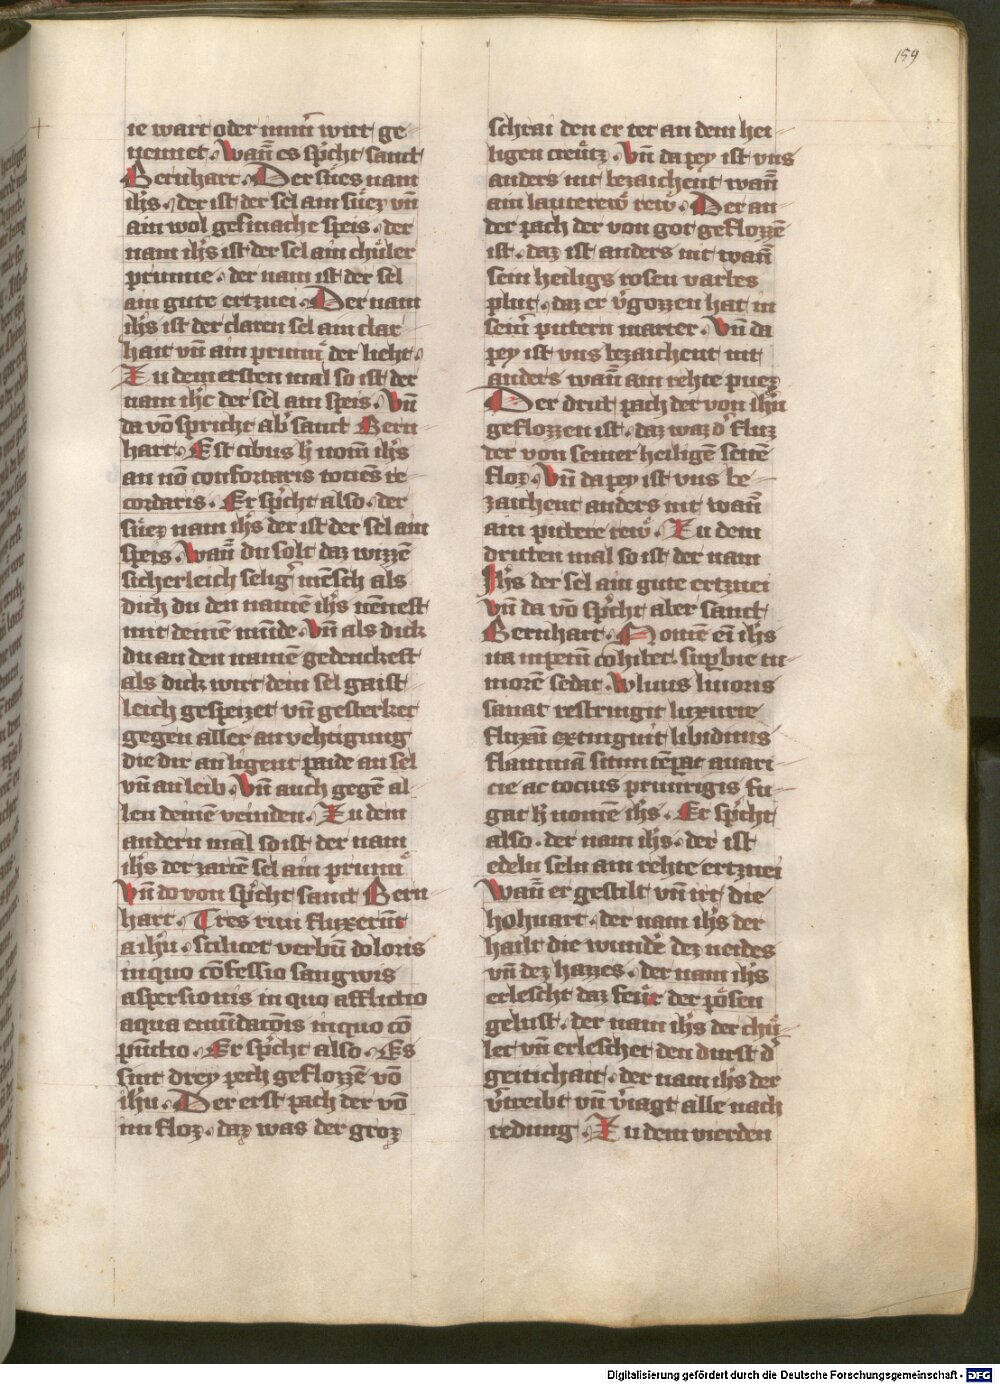 159
ie wart oder nim̄ wirt ge
nennet. Wan̄ es sp̓cht sanct
Bernhart. Der sües nam
ih̄s. der ist der sel ain süez vn̄
ain wol gesmache speis. der
nam ih̄s ist der sel ain chüler
prunne. der nam ist der sel
ain gute ertznei. Der nam
ih̄s ist der claren sel ain clar
hait vn̄ ain prunn̄ der licht.
Zu dem ersten mal so ist der
nam ih̄c der sel ain speis. Vn̄
da vō spricht ab̓ sanct Bern
hart. Est cibus h̄ nom̄ ih̄s
an nō confortaris tociēs re
cordaris. Er sp̓cht also. der
süez nam ih̄s der ist der sel ain
speis. Wan̄ du solt daz wizzē
sicherleich selig̓ mēsch als
dich du den namē ih̄s nēnest
mit deinē munde. Vn̄ als dick
du an den namē gedenckest
als dick wirt dein sel gaist
leich gespeizet vn̄ gesterket
gegen aller anvehtigung
die dir an ligent paide an sel
vn̄ an leib. Vn̄ auch gegē al
len deinē veinden. Zu dem
andern mal so ist der nam
ih̄s der zartē sel ain prunn̄
Vn̄ do von sp̓cht sanct Bern
hart. Tres riui fluxerūt
a ih̄u. scilicet verbū doloris
in quo cōfessio sangwis
aspersionis in quo afflictio
aqua emūdacōis in quo cō
pūctio. Er sp̓cht also. Es
sint drey pech geflozzē vō
ih̄u. Der erst pach der vō
im floz. daz was der groz
schrai den er tet an dem hei
ligen creütz. Vn̄ da pey ist vns
anders nit bezaichent wan̄
ain lauterew̄ rew. Der an
der pach der von got geflozzē
ist. daz ist anders nit wan̄
sein heiligs rosen varbes
plut. daz er v̓gozzen hat in
sein̄ pittern marter. Vn̄ da
pey ist vns bezaichent nit
anders wan̄ ain rehte puez
Der drit pach der von ih̄u
geflozzen ist. daz waz d̓ fluz
der von seiner heiligē seitē
floz. Vn̄ da pey ist vns be
zaichent anders nit wan̄
ain pittere rew̄. Zu dem
dritten mal so ist der nam
Ih̄s der sel ain gute ertznei
vn̄ da vō sp̓cht aber sanct
Bernhart. Nomē ei ih̄s
ira inpetū cohibet. sup̄bie tu
morē sedat. Wlnus liuoris
sanat restringit luxurie
fluxū extinguit libidinis
flammā sitim tēpat auari
cie ac tocius pruriginis fu
gat h̄ nomē ih̄s. Er sp̓cht
also. der nam ih̄s. der ist
edeln seln ain rehte ertznei
Wan̄ er gestilt vn̄ irt die
hohuart. der nam ih̄s der
hailt die wundē dez neides
vn̄ dez hazzes. der nam ih̄s
erlescht daz feur̄ der pösen
gelust. der nam ih̄s der chü
let vn̄ erleschet den durst d̓
geitichait. der nam ih̄s der
v̓treibt vn̄ v̓iagt alle nach
redung. Zu dem vierden
Digitalisierung gefördert durch die Deutsche Forschungsgemeinschaft - DFG